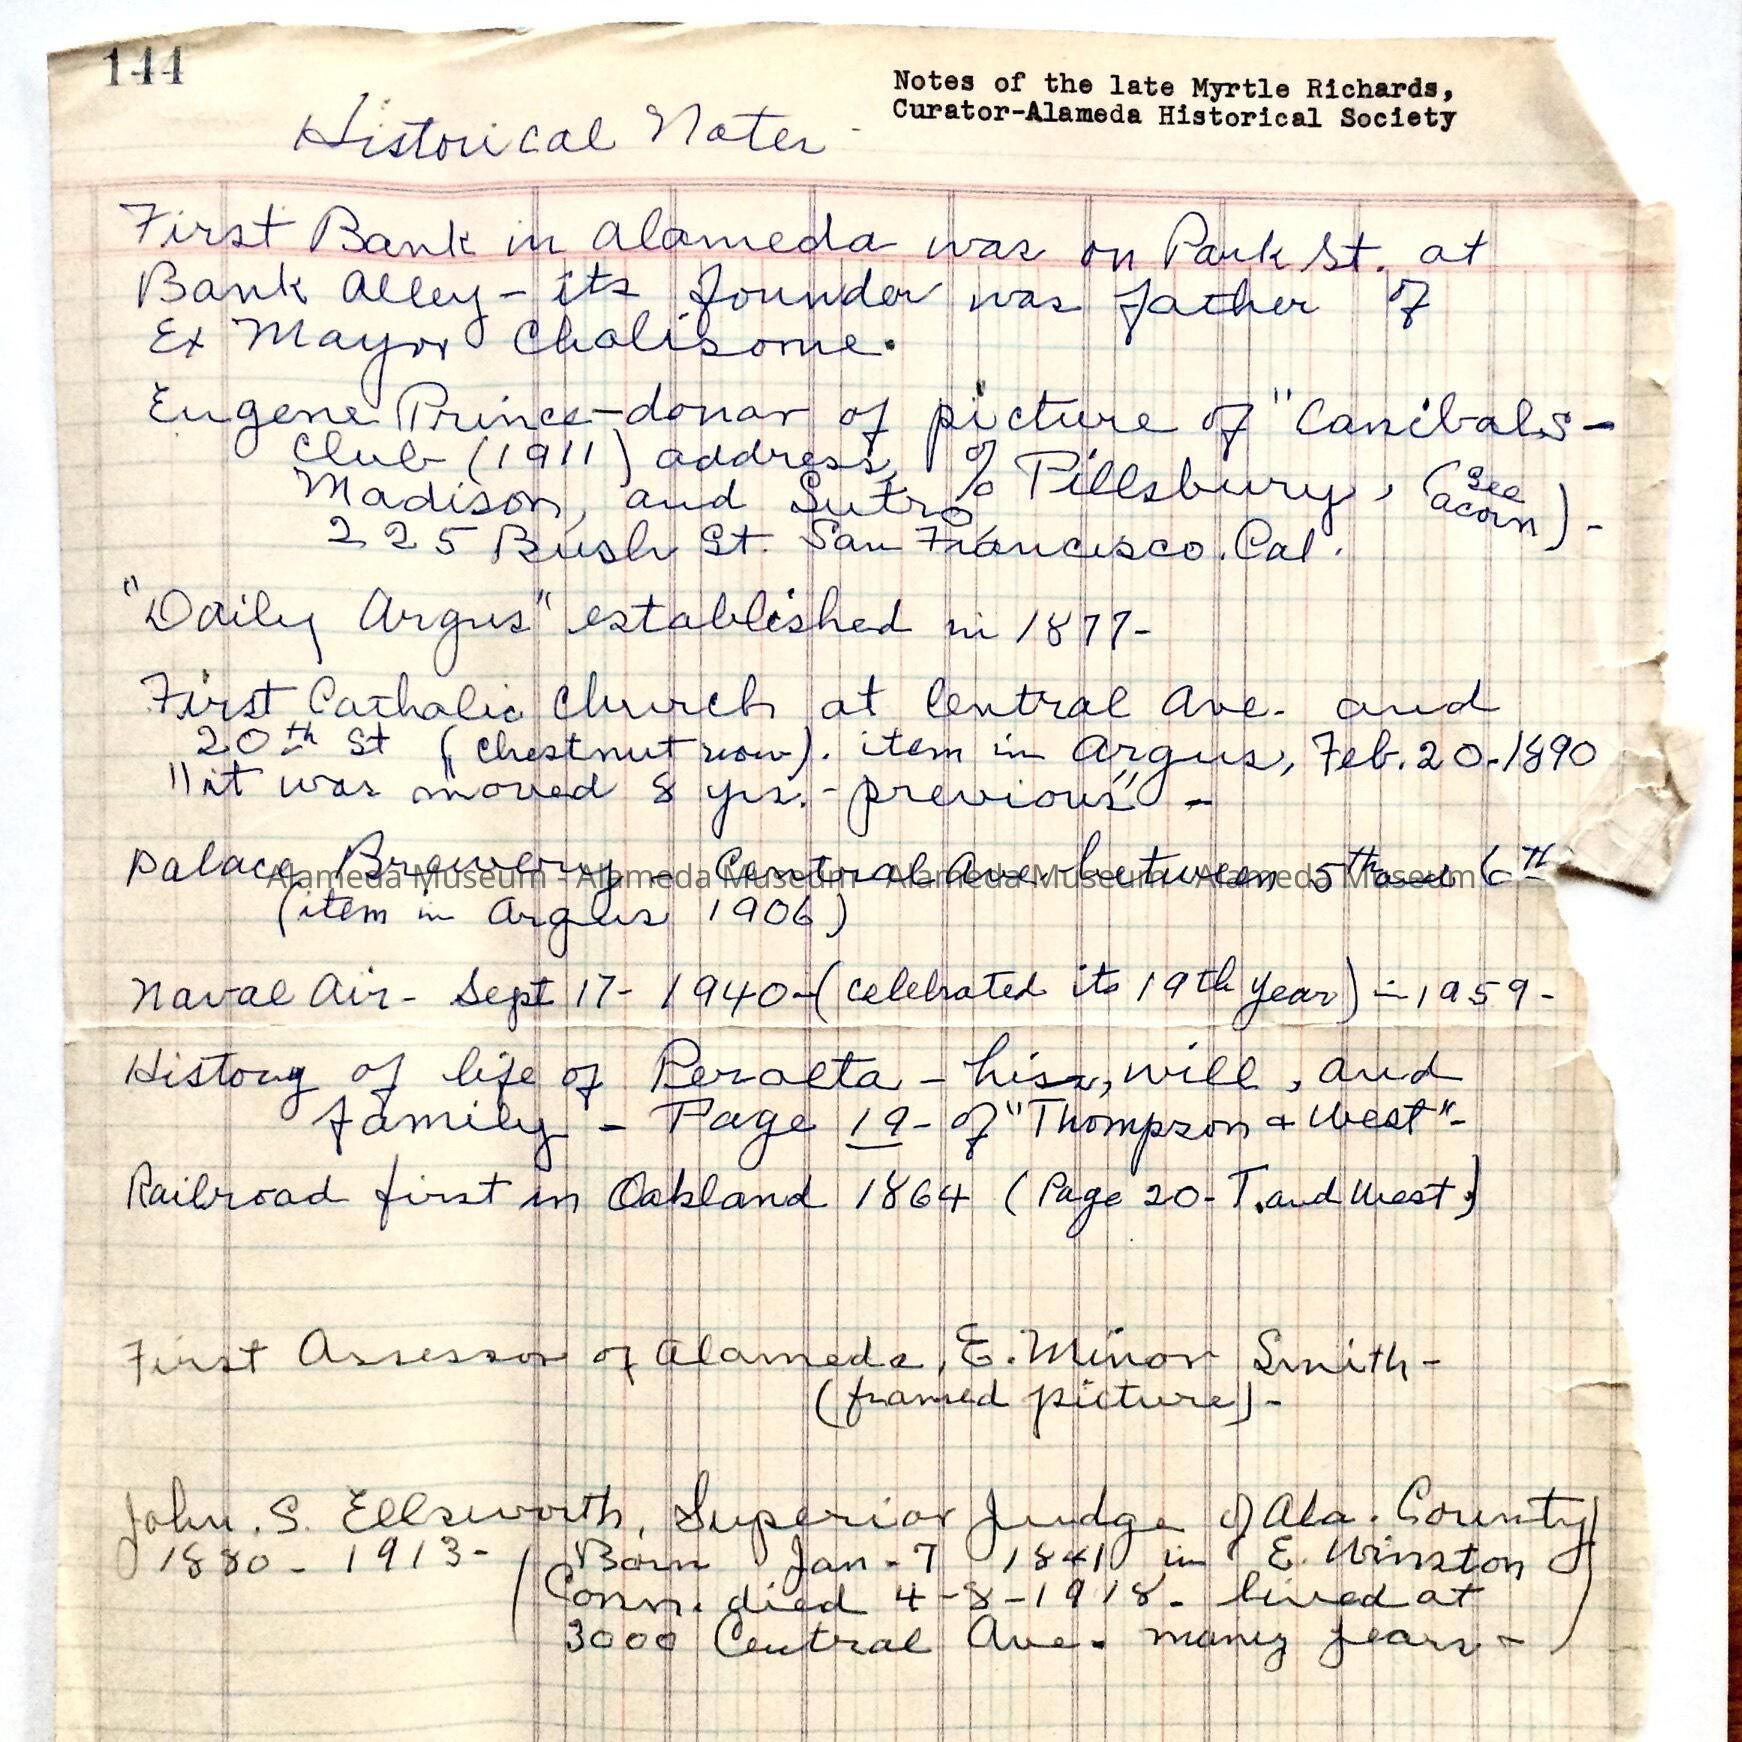 144
Notes of the late Myrtle Richards,
Curator-Alameda Historical Society
Historical Notes -
First Bank in Alameda was on Park St. at
Bank Alley - its founder was father of
Ex Mayor Cholisome.
Eugene Prince - donar of picture of "Canibals -
Club (1911) address, % Pillsbury, (see
acorn) -
Madison, and Sutro,
225 Bush St. San Francisco. Cal.
"Daily Argus" established in 1877 -
First Catholic Church at Central Ave. and
20th St (Chestnut now). item in Argus, Feb. 20-1890
"it was moved 8 yrs. - previous" -
Palace Brewery - Central Ave. between 5th and 6th
Alameda Museum - Alameda Museum - Alameda Museum - Alameda Museum
(item in Argus 1906)
Naval Air - Sept 17 - 1940 - (celebrated its 19th year) in 1959 -
History of life of Peralta - his, will, and
family - Page 19 - of "Thompson & West" -
Railroad first in Oakland 1864 (Page 20 - T. and West)
First Assessor of Alameda, E. Minor Smith -
(framed picture) -
John. S. Ellsworth, Superior Judge of Ala. County
1880 - 1913 - (Born Jan - 7 1841 in E. Winston
Conn. died 4-8-1918 - lived at
3000 Central Ave. many years -)